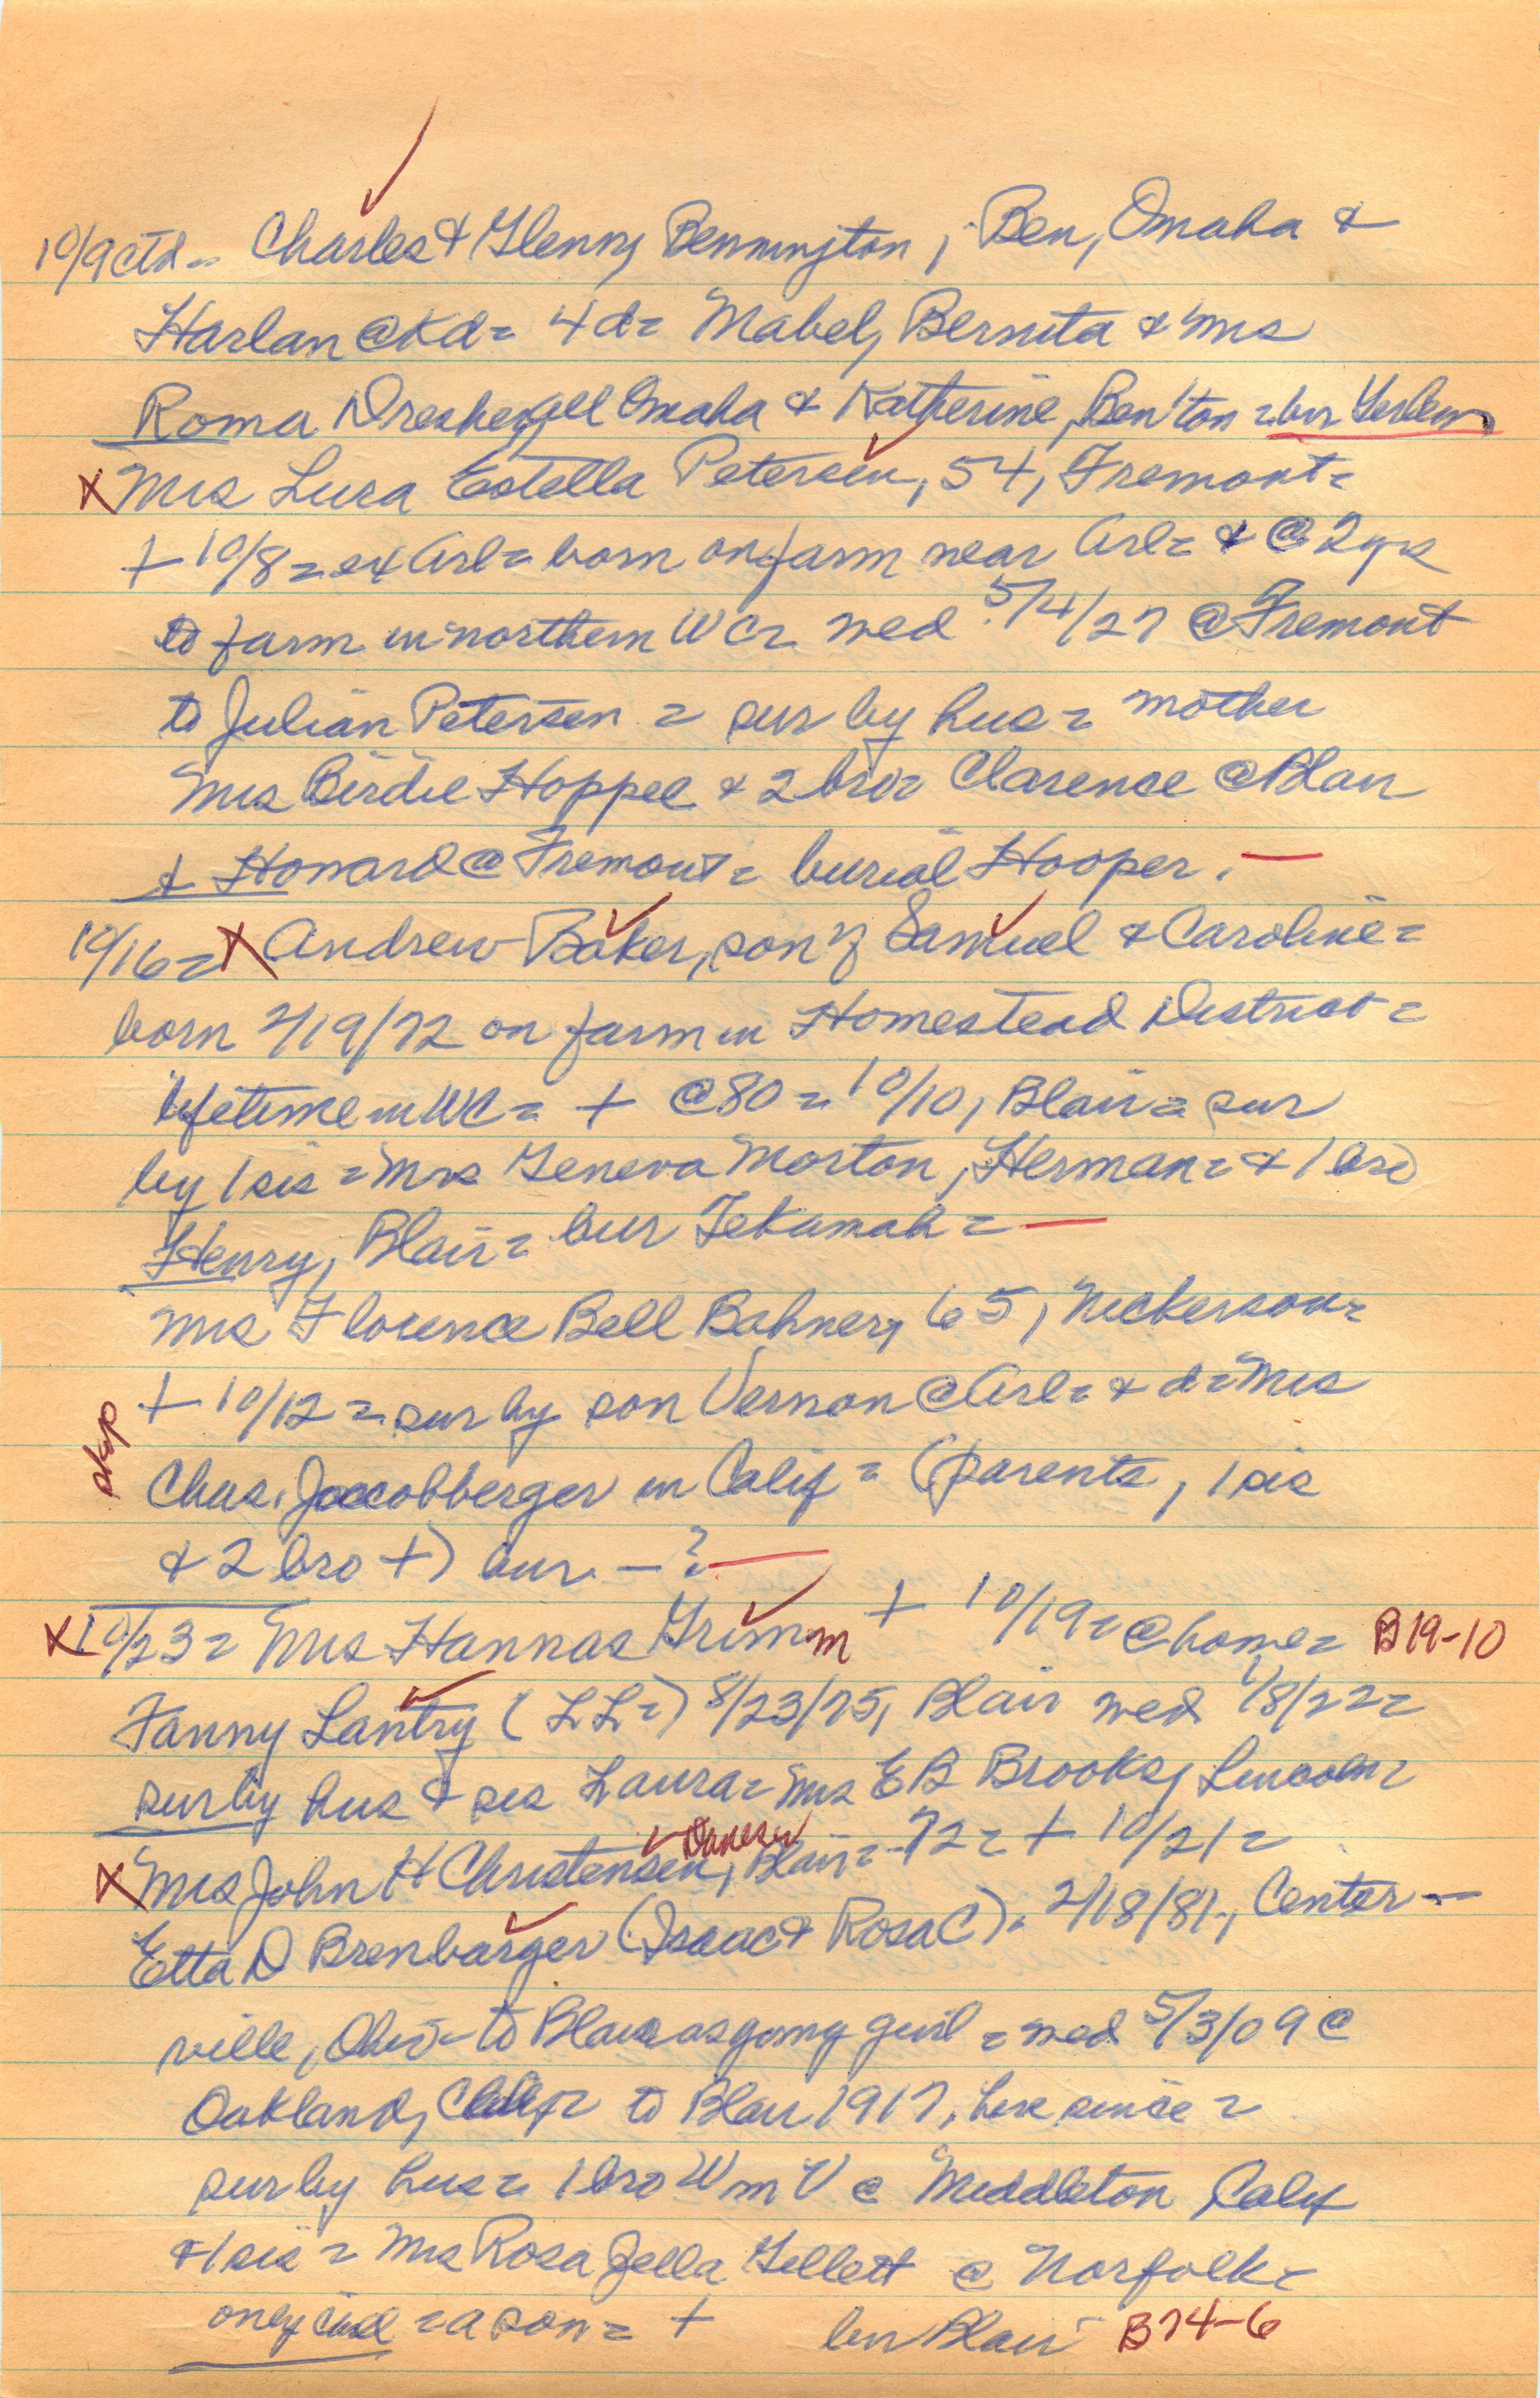 10/9 ctd = Charles & Glenn, Bennington, Ben, Omaha &
Harlan @ Kd = 4 d = Mabel, Bernita & Mrs
Roma Dresher, all Omaha & Katherine, Ben'ton = bur
X Mrs Lura Estella Petersen, 54, Fremont =
+ 10/8 = ex Arl = born on farm near Arl = & @ 2 yrs
to farm in northern WC = wed 5/4/27 @ Fremont
to Julian Petersen = sur by hus = mother
Mrs Birdie Hoppel & 2 bro = Clarence @ Blair
& Howard @ Fremont = burial Hooper. —
10/16 = X Andrew Baker, son of Samuel & Caroline =
born 2/19/72 on farm in Homestead District =
lifetime in WC = + @ 80 = 10/10, Blair = sur
by 1 sis = Mrs Geneva Morton, Herman = & 1 bro
Henry, Blair = bur Tekamah = —
Mrs Florence Bell Bahner, 65, Nickerson =
+ 10/12 = sur by son Vernon @ Arl = & d = Mrs
skip
Chas. Jaccobberger in Calif = (parents, 1 sis
& 2 bro +) bur. — ? —
X 10/23 = Mrs Hannas Grimm + 10/19 = @ home = B19-10
Fanny Lantry (LL =) 8/23/75, Blair wed 1/8/22 =
sur by hus & sis Laura = Mrs E B Brooks, Lincoln =
Mrs John H Christensen, Blair = 72 = + 10/21 =
Etta D Brenbarger (Isaac & Rosa C) = 2/18/81, Center-
ville, Ohio - to Blair as young girl = wed 5/3/09 @
Oakland, Calif = to Blair 1917, here since =
sur by hus = 1 bro Wm V @ Middleton Calif
& 1 sis = Mrs Rosa Jella Gillett @ Norfolk =
only child = a son = + bur Blair B74-6